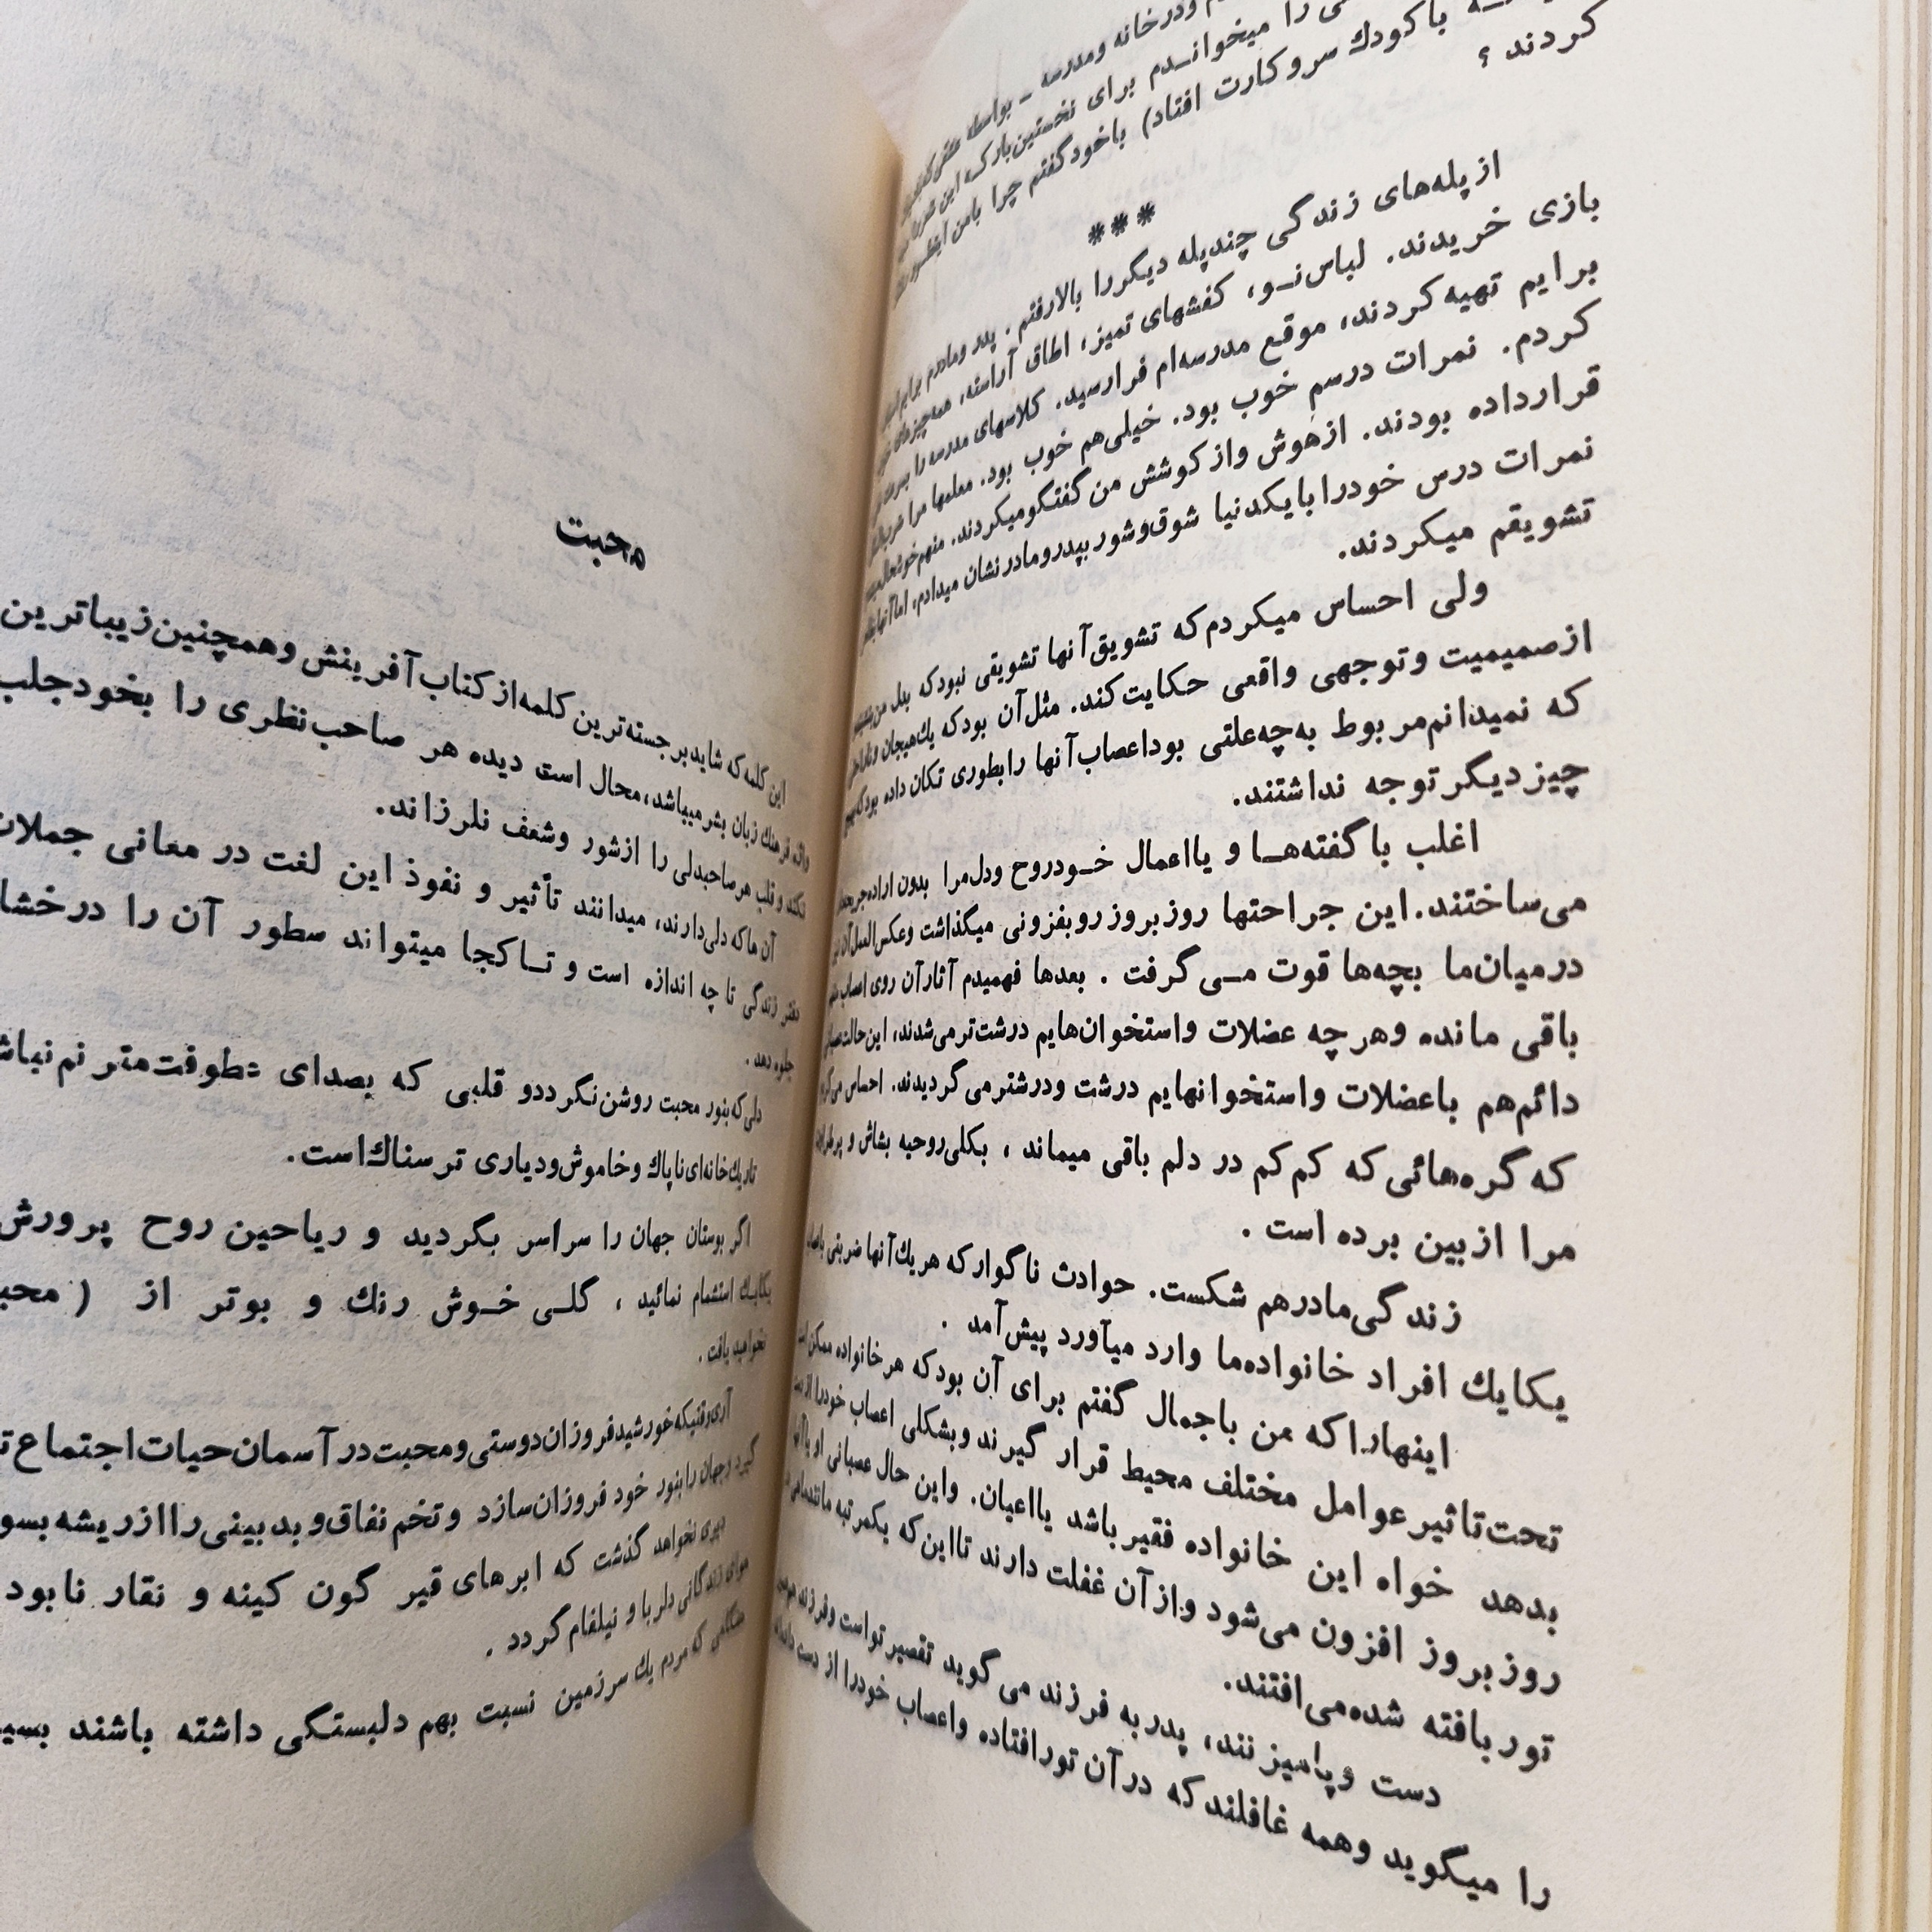 ودرخانه ومدرسه ـ بواسطه
را میخوانـدم برای نخستین‌بارکـه این
باکودك سروکارت افتاد) باخودگفتم چرا بامن اینطور
کردند ؟
***
ازپله‌های زندگی چندپله دیگررا بالارفتم . پدر ومادرم برایم اسباب
بازی خریدند. لباس‌نـو، کفشهای تمیز، اطاق آراسته، همه‌چیزهای خوب
برایم تهیه‌کردند، موقع مدرسه‌ام فرارسید. کلاسهای مدرسه را بسرعت طی
کردم. نمرات درسم خوب بود. خیلی‌هم خوب بود. معلمها مرا
قرارداده بودند. ازهوش وازکوشش من گفتگومیکردند. منهم‌خوشحال
نمرات درس خودرابایکدنیا شوق‌وشور بپدرومادر نشان میدادم، اماآنها
تشویقم میکردند.
ولی احساس میکردم‌که تشویق‌آنها تشویقی نبودکه بدل من
ازصمیمیت وتوجهی واقعی حکایت‌کند. مثل‌آن بودکه یك‌هیجان وناراحتی
که نمیدانم‌مربوط به‌چه‌علتی بوداعصاب‌آنها رابطوری تکان داده بودکه‌بهیچ
چیزدیگرتوجه نداشتند.
اغلب باگفته‌هـا و یااعمال خـودروح ودل‌مرا بدون اراده‌جریحه‌دار
می‌ساختند.این جراحتها روزبروزروبفزونی میگذاشت وعکس‌العمل‌آن
درمیان‌ما بچه‌ها قوت مـی‌گرفت . بعدها فهمیدم آثارآن روی اعصاب
باقی مانده وهرچه عضلات واستخوان‌هایم درشت‌ترمی‌شدند، این‌حالت
دائم‌هم باعضلات واستخوانهایم درشت ودرشترمی‌گردیدند. احساس می‌کردم
که‌گره‌هائی‌که کم‌کم در دلم باقی میماند ، بکلی‌روحیه بشاش و
مرا ازبین برده است .
زندگی‌مادرهم شکست. حوادث ناگوارکه هریك‌آنها ضربتی
یکایك افراد خانواده‌ما وارد میآورد پیش‌آمد .
اینهاراکه من باجمال گفتم برای آن بودکه هرخانواده ممکن‌است
تحت‌تاثیرعوامل مختلف محیط قرار گیرند وبشکلی اعصاب خودرا ازدست
بدهد خواه این خانواده فقیرباشد یااعیان. واین حال عصبانی او
روزبروز افزون می‌شود وازآن غفلت دارند تااین‌که یکمرتبه مانندماهی در
توربافته شده‌می‌افتند.
دست وپامیزنند، پدربه فرزند می‌گوید تقصیرتواست وفرزند
را میگوید وهمه غافلندکه درآن تورافتاده واعصاب خودرا از دست داده‌اند
محبت
این کلمه‌که شایدبرجسته‌ترین کلمه‌ازکتاب‌آفرینش وهمچنین‌زیباترین
واژه فرهنك زبان بشرمیباشد،محال است دیده هر صاحب‌نظری را بخودجلب
نکند و قلب هرصاحبدلی را ازشور وشعف نلرزاند.
آن ماکه دلی‌دارند، میدانند تأثیر و نفوذ این لغت در معانی جملات
دفتر زندگی تا چه اندازه است و تـاکجا میتواند سطور آن را
جلوه‌دهد .
دلی‌که‌بنور محبت روشن‌نگرددو قلبی که بصدای عطوفت‌مترنم‌نباشد
تاریك‌خانه‌ای‌ناپاك وخاموش‌ودیاری ترسناك‌است.
اگر بوستان جهان را سراسر بگردید و ریاحین روح پرورش
یکایـك استشمام نمائید ، گلـی خـوش رنك و بوتر از (
نخواهید یافت .
آری‌وقتیکه‌خورشیدفروزان‌دوستی‌ومحبت‌درآسمان‌حیات‌اجتماع
گیرد وجهان رابنور خود فروزان‌سازد وتخم‌نفاق‌و‌بدبینی‌راازریشه
دیری نخواهد گذشت که ابرهای قیر گون کینه و نقار نابود
هوای زندگانی دلربا و نیلفام‌گردد .
هنگامی که مردم یك سرزمین نسبت بهم دلبستگی داشته باشند